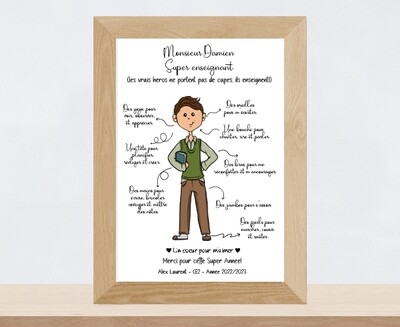 Monsieur Damien
Super enseignant
(les vrais heros ne portent pas de capes, ils enseignent!)
Des yeux pour
voir, observer
et apprécier
Des oreilles
pour m'écouter
Une bouche pour
chanter, rire et parler
Une tête pour
planifier,
corriger et créer
Des bras pour me
réconforter et m'encourager
Des mains pour
écrire, bricoler
corriger et mettre
des notes
Des jambes pour s'asseoir
Des pieds pour
marcher, courir
et sauter
♥ Un coeur pour m'aimer ♥
Merci pour cette Super Année!
Alex Laurent - CE2 - Année 2022/2023